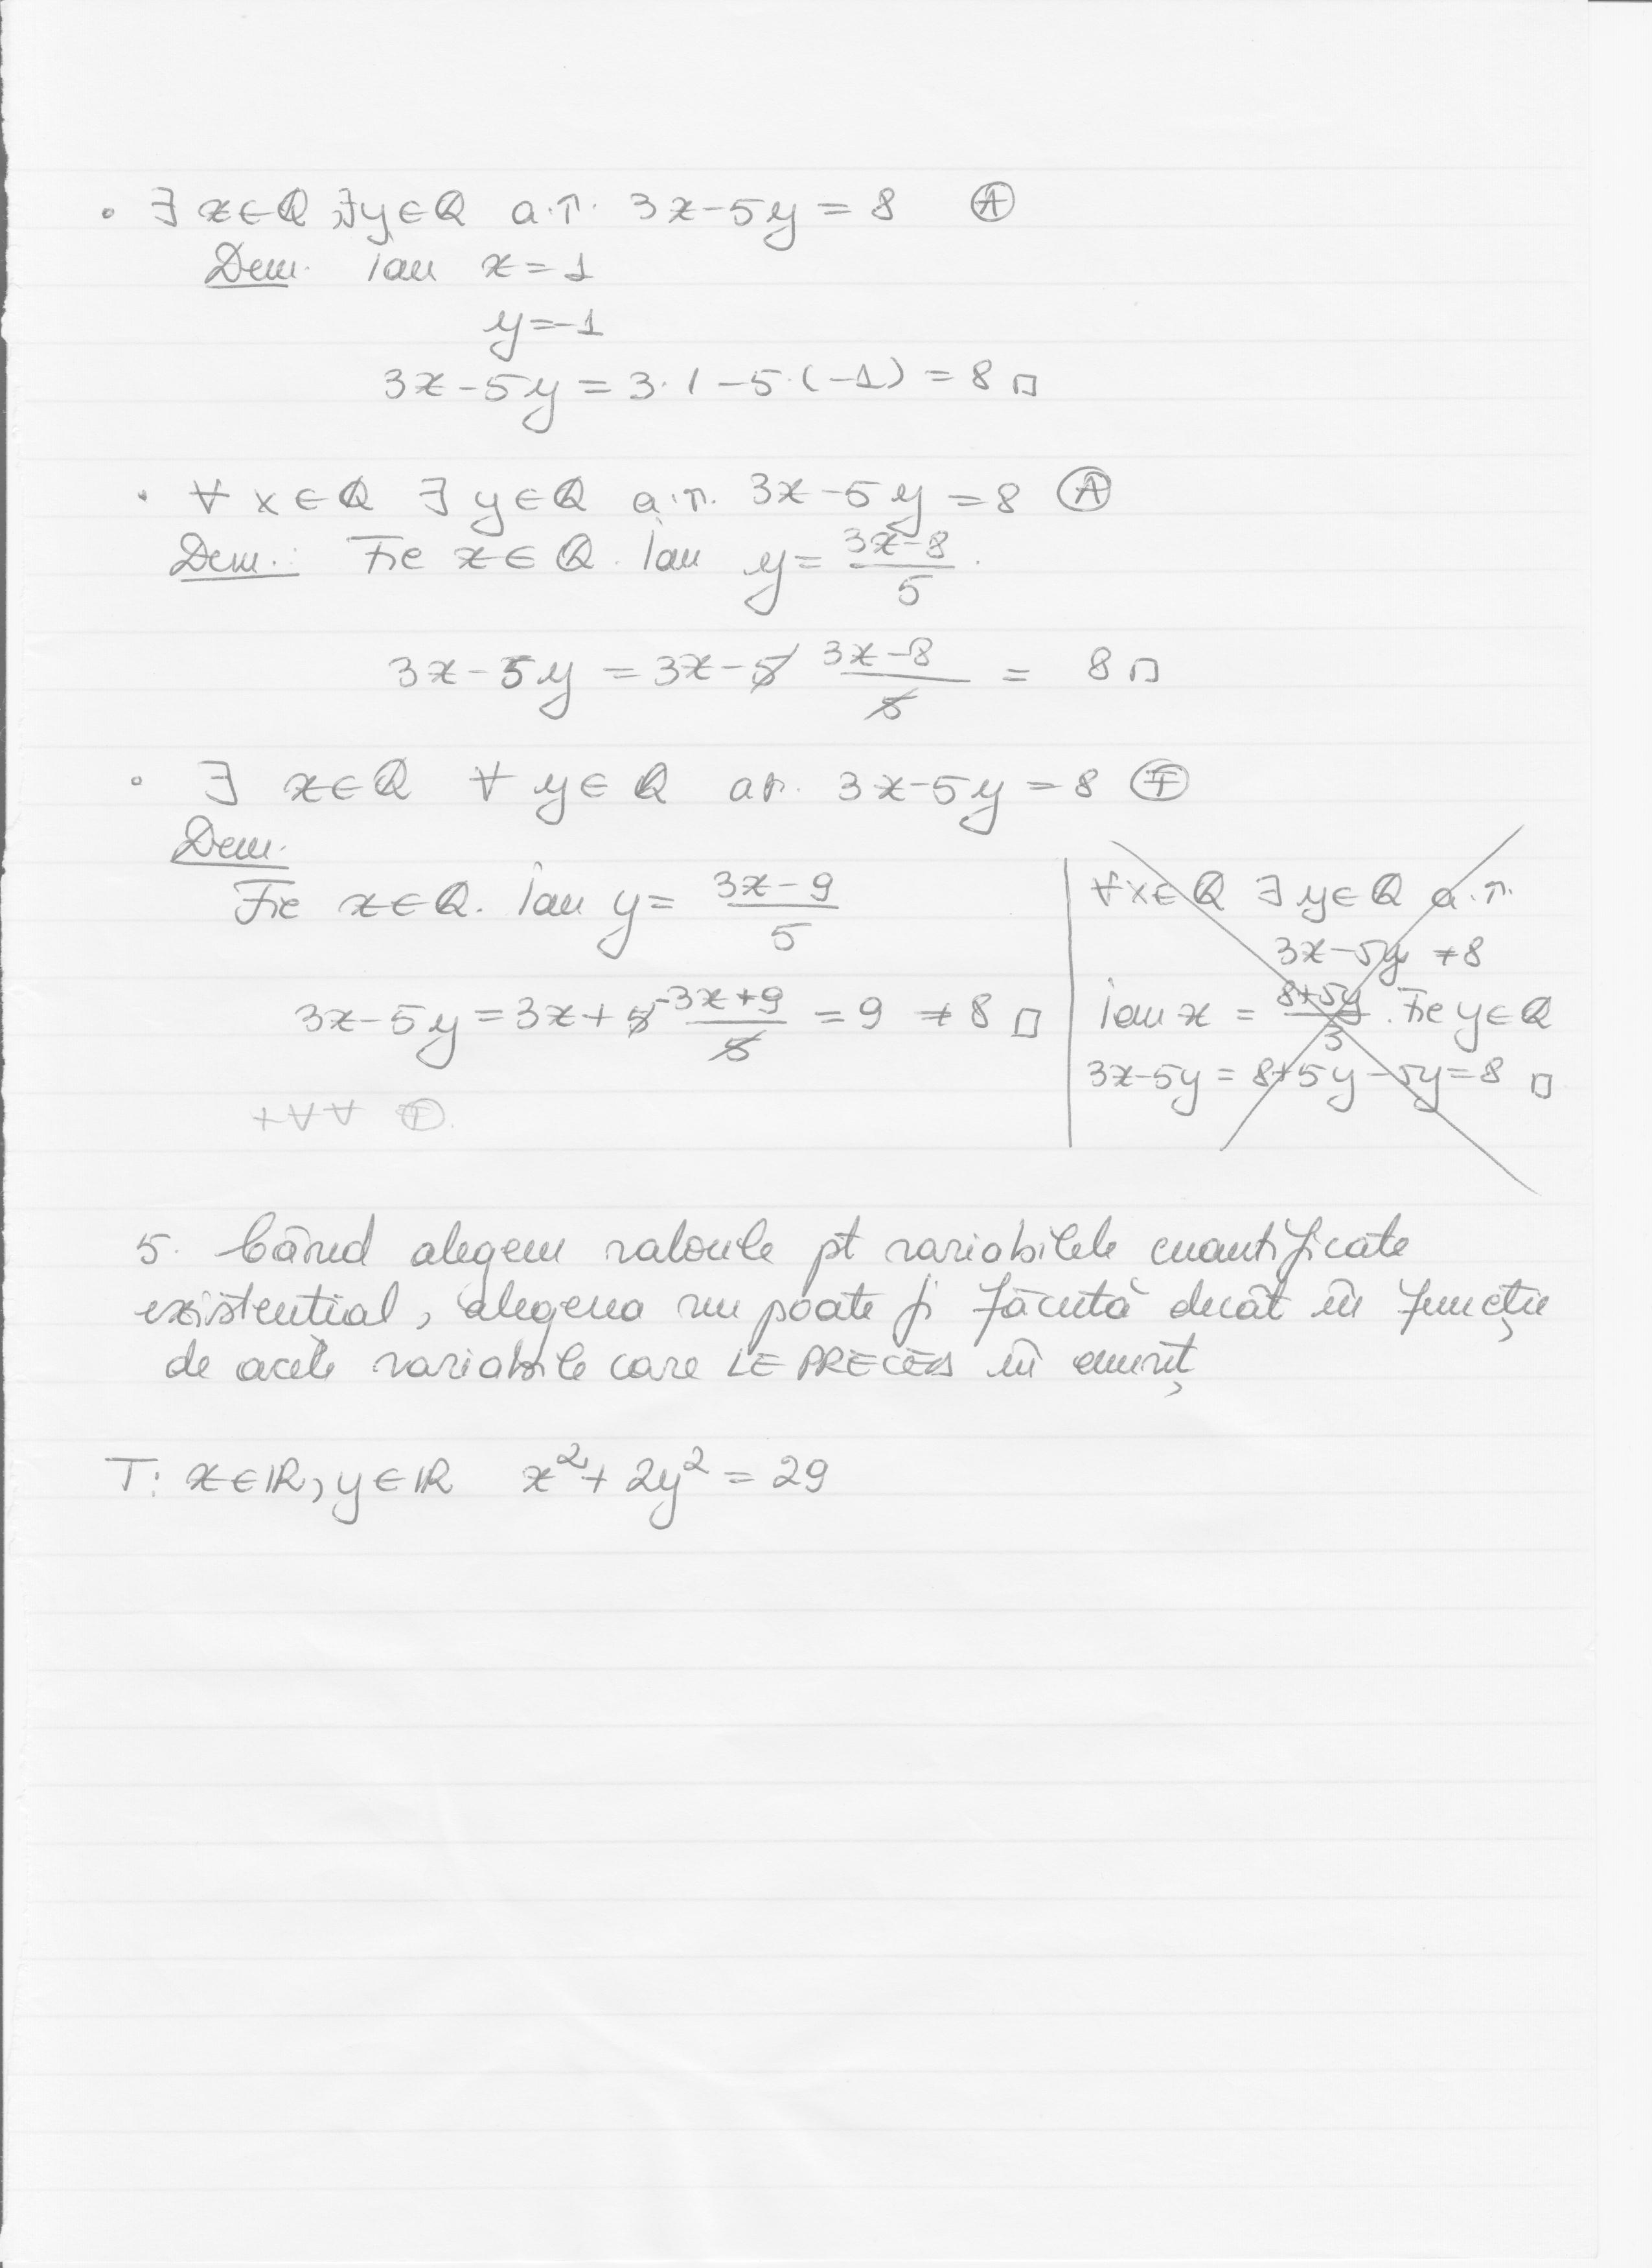 • ∃ x∈ℚ, ∃y∈ℚ a.î. 3x-5y=8 Ⓐ
Dem. iau x=1
y=-1
3x-5y=3·1-5·(-1)=8 □
• ∀ x∈ℚ ∃ y∈ℚ a.î. 3x-5y=8 Ⓐ
Dem.: Fie x∈ℚ. Iau y=(3x-8)/5.
3x-5y=3x-5 (3x-8)/5 = 8 □
• ∃ x∈ℚ ∀ y∈ℚ a.î. 3x-5y=8 Ⓕ
Dem.
Fie x∈ℚ. Iau y=(3x-9)/5
3x-5y=3x+5 (-3x+9)/5 = 9 ≠ 8 □
∀x∈ℚ ∃ y∈ℚ a.î.
3x-5y ≠8
Iau x = (8+5y)/3. Fie y∈ℚ
3x-5y = 8+5y-5y=8 □
5. Când alegem valorile pt variabilele cuantificate
existential, alegerea nu poate fi făcută decât în funcție
de acele variabile care LE PRECED în enunț
T: x∈ℝ, y∈ℝ x²+2y²=29